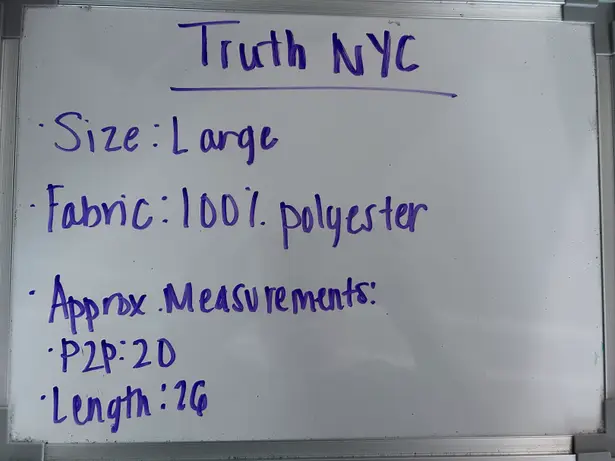 Truth NYC
· Size: Large
· Fabric: 100% polyester
· Approx. Measurements:
· P2P: 20
· Length: 26